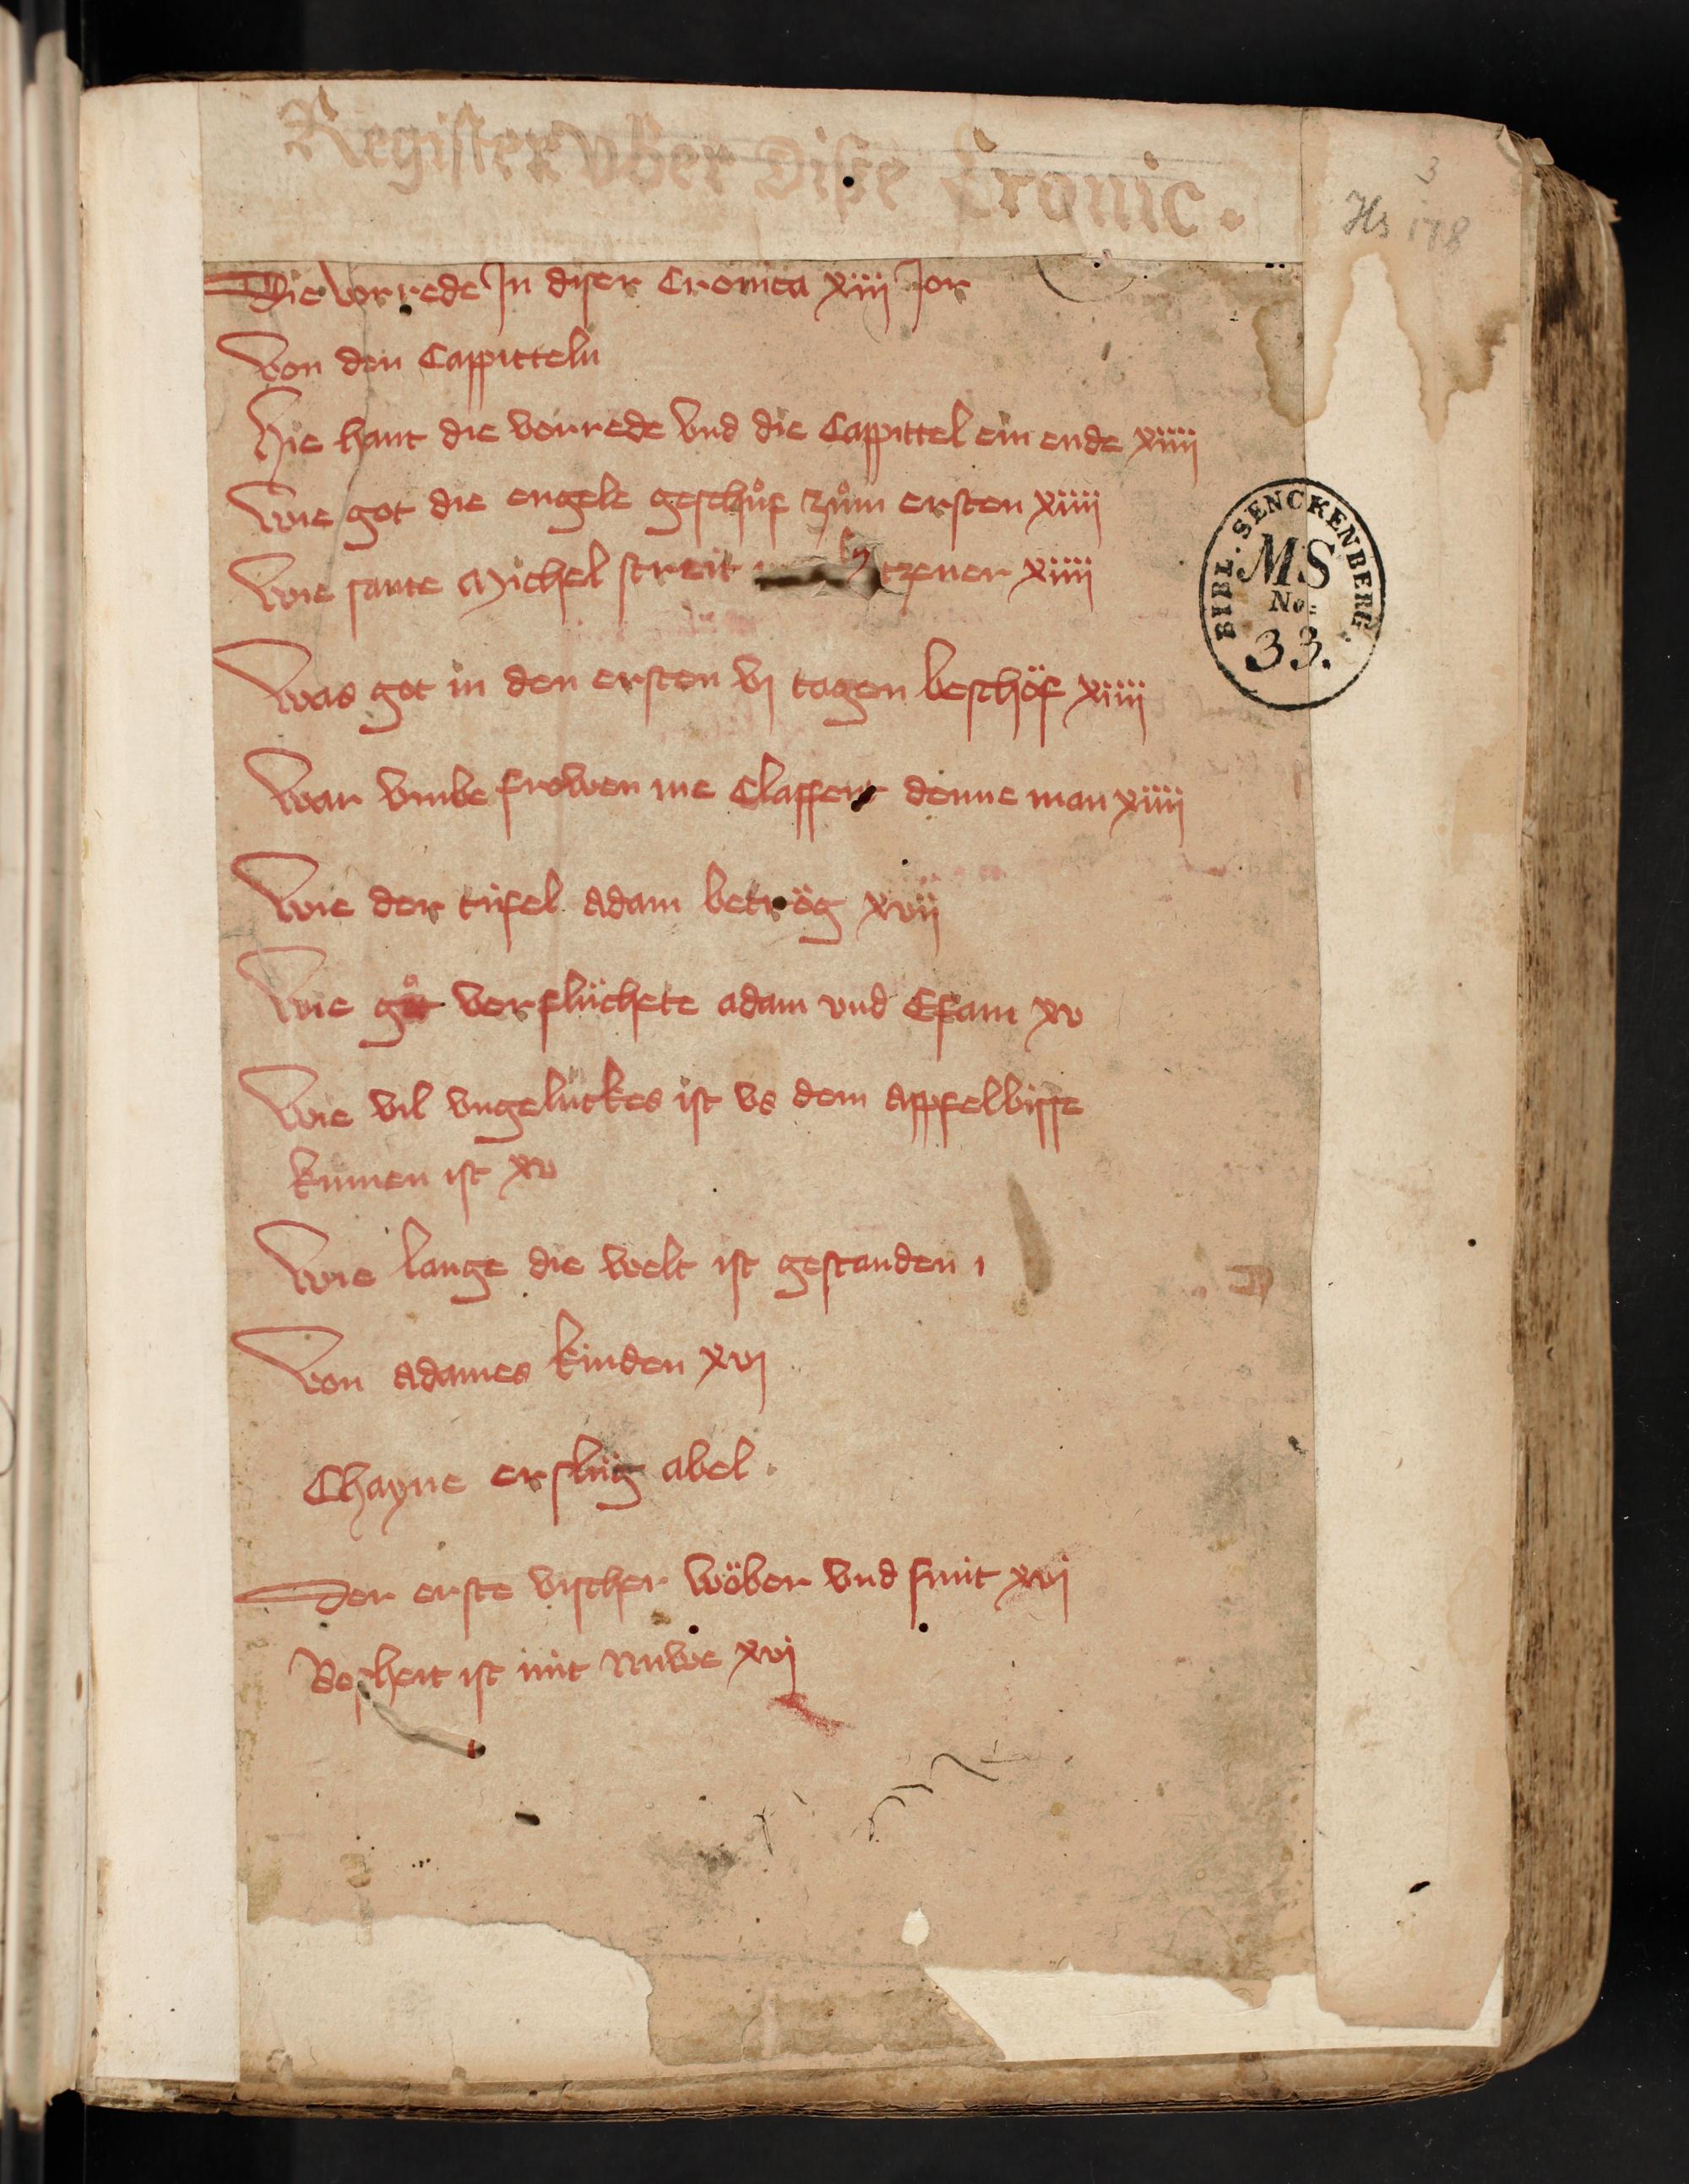 Register vber diße Cronic.
3
Hs 178
Die vorrede Jn diser Cronica xiiij Jor
Von den Cappitteln
Hie hant die vorrede vnd die Cappittel ein ende xiiij
Wie got die engele geschůf zům ersten xiiij
Wie sante Michel streit tzener xiiij
BIBL. SENCKENBERG.
MS
No:
33.
Was got in den ersten vj tagen beschöf xiiij
War vmbe frowen me Claffent denne man xiiij
Wie der tüfel Adam betrög xvij
Wie got verflüchete adam vnd Efam xv
Wie vil vngelückes ist vs dem Appfelbisse
kumen ist xv
Wie lange die welt ist gestanden 1
Von Adames kinden xvj
Chayne erslüg abel
Der erste vischer wöber vnd smit xvj
Bosheit ist nüt nuwe xvj